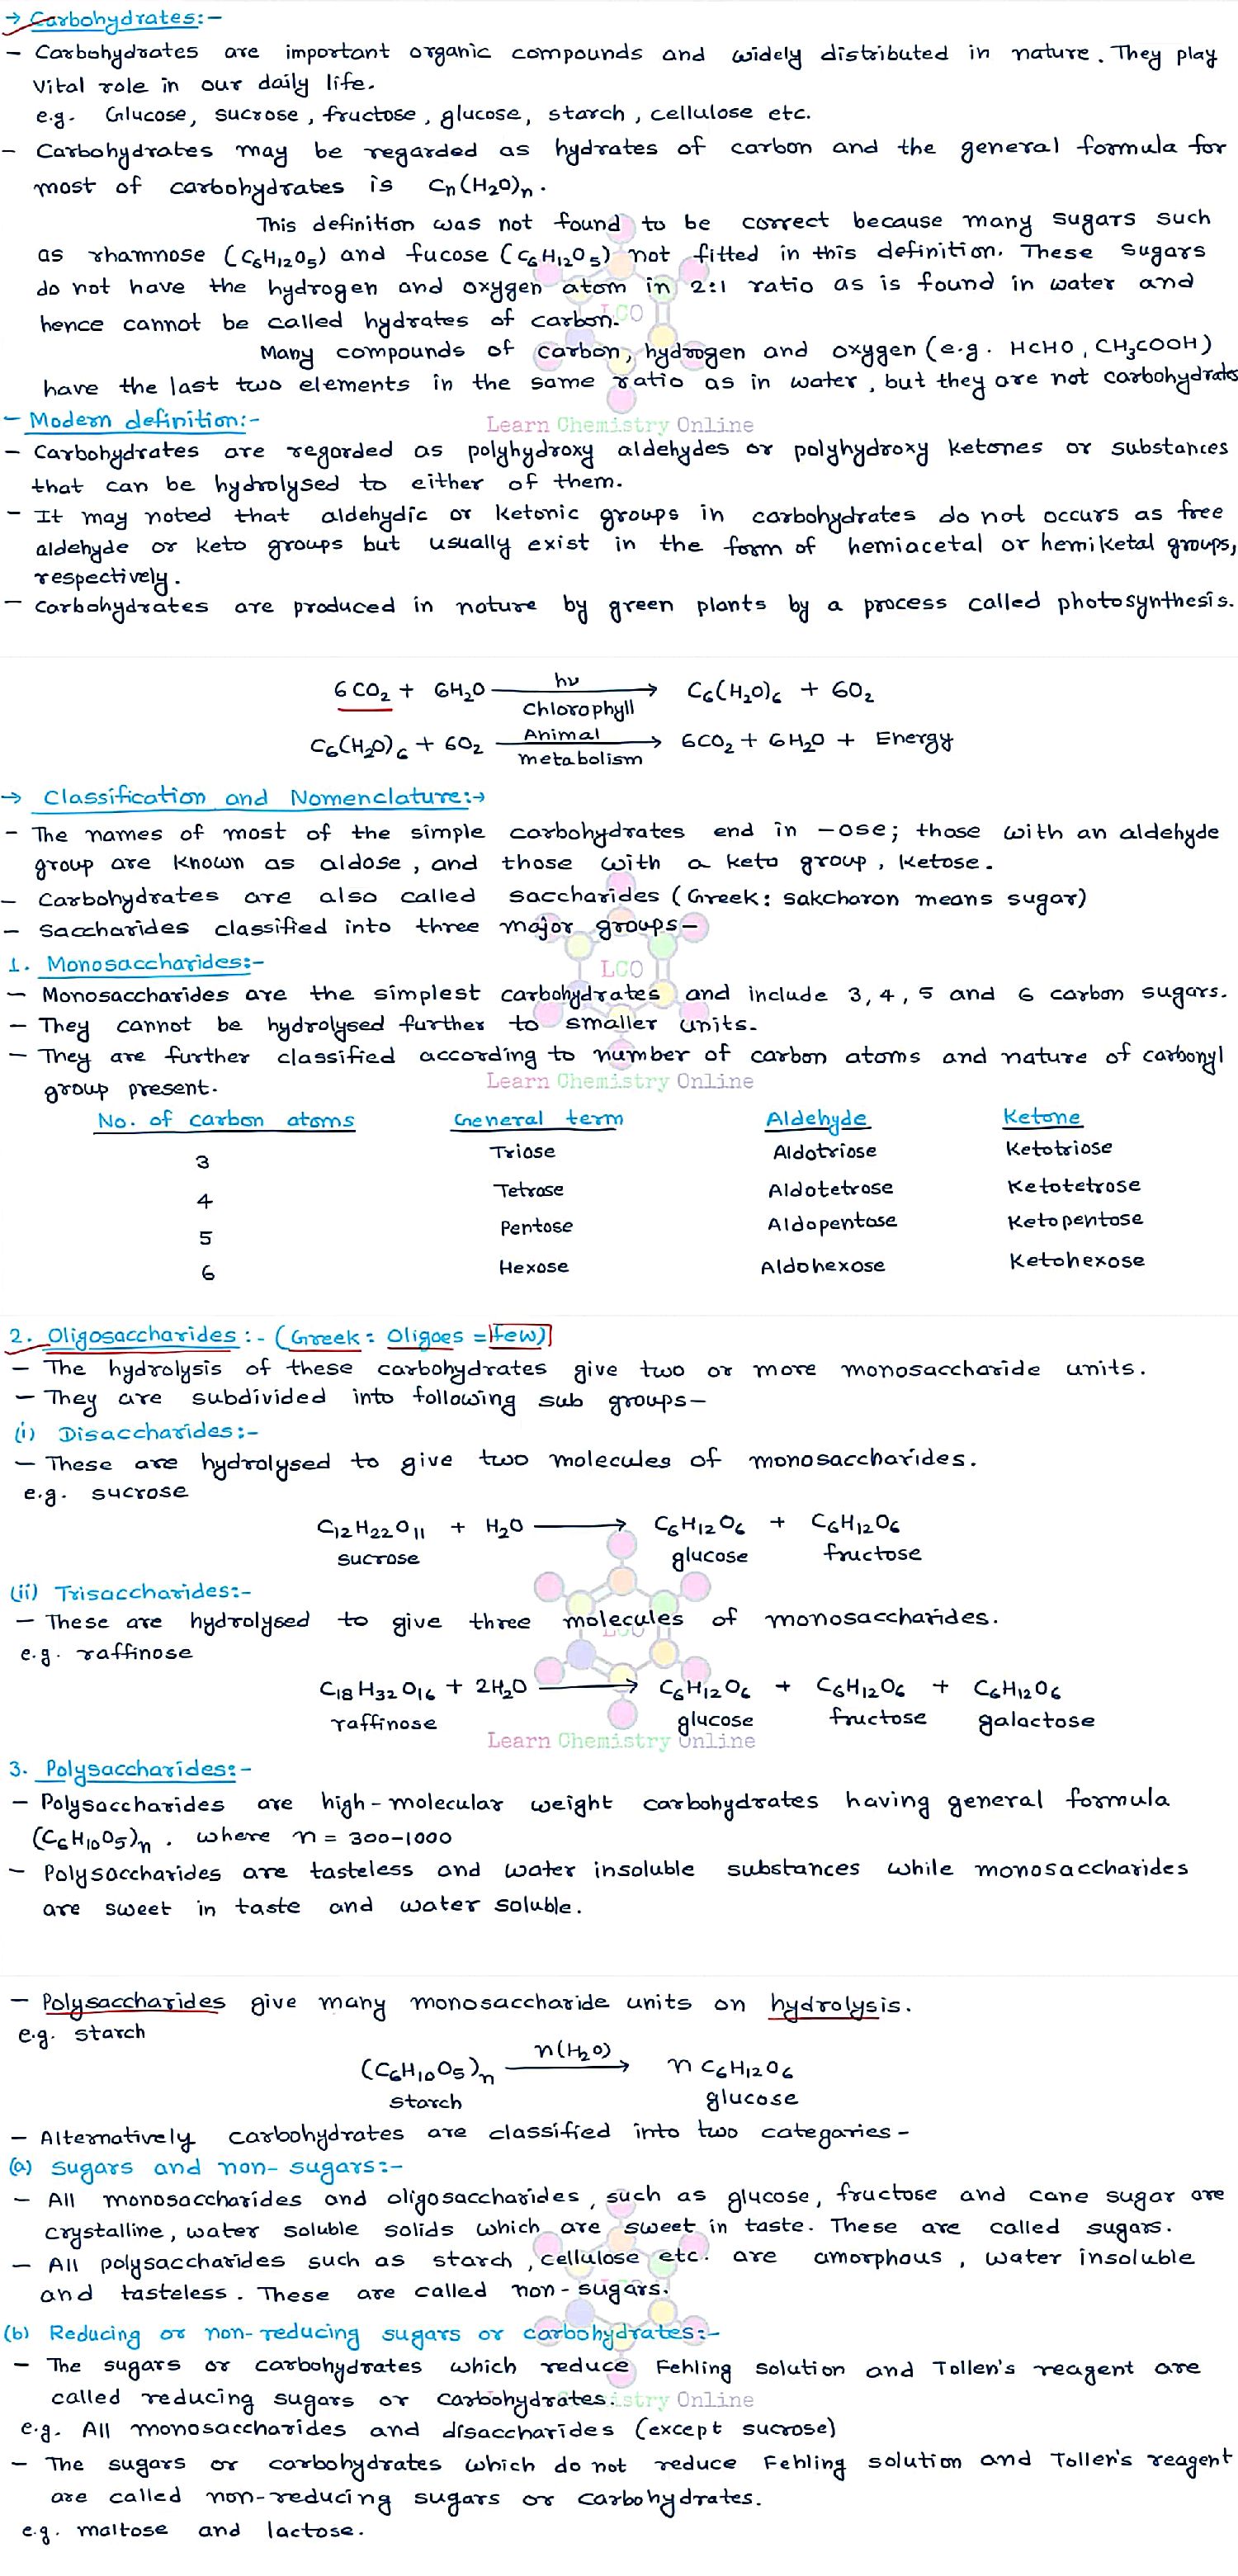 → Carbohydrates:-
- Carbohydrates are important organic compounds and widely distributed in nature. They play
vital role in our daily life.
e.g. Glucose, sucrose, fructose, glucose, starch, cellulose etc.
- Carbohydrates may be regarded as hydrates of carbon and the general formula for
most of carbohydrates is Cn(H2O)n.
This definition was not found to be correct because many sugars such
as rhamnose (C6H12O5) and fucose (C6H12O5) not fitted in this definition. These sugars
do not have the hydrogen and oxygen atom in 2:1 ratio as is found in water and
LCO
hence cannot be called hydrates of carbon.
Many compounds of carbon, hydrogen and oxygen (e.g. HCHO, CH3COOH)
have the last two elements in the same ratio as in water, but they are not carbohydrates
- Modern definition:-
Learn Chemistry Online
- Carbohydrates are regarded as polyhydroxy aldehydes or polyhydroxy ketones or substances
that can be hydrolysed to either of them.
- It may noted that aldehydic or ketonic groups in carbohydrates do not occurs as free
aldehyde or keto groups but usually exist in the form of hemiacetal or hemiketal groups,
respectively.
- Carbohydrates are produced in nature by green plants by a process called photosynthesis.
6CO2 + 6H2O hν Chlorophyll → C6(H2O)6 + 6O2
C6(H2O)6 + 6O2 Animal metabolism → 6CO2 + 6H2O + Energy
→ Classification and Nomenclature:→
- The names of most of the simple carbohydrates end in -ose; those with an aldehyde
group are known as aldose, and those with a keto group, ketose.
- Carbohydrates are also called saccharides (Greek: sakcharon means sugar)
- Saccharides classified into three major groups-
1. Monosaccharides:-
LCO
- Monosaccharides are the simplest carbohydrates and include 3, 4, 5 and 6 carbon sugars.
- They cannot be hydrolysed further to smaller units.
- They are further classified according to number of carbon atoms and nature of carbonyl
group present.
Learn Chemistry Online
No. of carbon atoms General term Aldehyde Ketone
3 Triose Aldotriose Ketotriose
4 Tetrose Aldotetrose Ketotetrose
5 Pentose Aldopentose Ketopentose
6 Hexose Aldohexose Ketohexose
2. Oligosaccharides:- (Greek: Oligoes = few)
- The hydrolysis of these carbohydrates give two or more monosaccharide units.
- They are subdivided into following sub groups-
(i) Disaccharides:-
- These are hydrolysed to give two molecules of monosaccharides.
e.g. sucrose
C12H22O11 + H2O → C6H12O6 + C6H12O6
sucrose glucose fructose
(ii) Trisaccharides:-
- These are hydrolysed to give three molecules of monosaccharides.
LCO
e.g. raffinose
C18H32O16 + 2H2O → C6H12O6 + C6H12O6 + C6H12O6
raffinose glucose fructose galactose
Learn Chemistry Online
3. Polysaccharides:-
- Polysaccharides are high-molecular weight carbohydrates having general formula
(C6H10O5)n. where n = 300-1000
- Polysaccharides are tasteless and water insoluble substances while monosaccharides
are sweet in taste and water soluble.
- Polysaccharides give many monosaccharide units on hydrolysis.
e.g. starch
(C6H10O5)n n(H2O) → n C6H12O6
starch glucose
- Alternatively carbohydrates are classified into two categories-
(a) Sugars and non-sugars:-
- All monosaccharides and oligosaccharides, such as glucose, fructose and cane sugar are
crystalline, water soluble solids which are sweet in taste. These are called sugars.
- All polysaccharides such as starch, cellulose etc. are amorphous, water insoluble
and tasteless. These are called non-sugars.
(b) Reducing or non-reducing sugars or carbohydrates:-
- The sugars or carbohydrates which reduce Fehling solution and Tollen's reagent are
called reducing sugars or carbohydrates.
istry Online
e.g. All monosaccharides and disaccharides (except sucrose)
- The sugars or carbohydrates which do not reduce Fehling solution and Tollen's reagent
are called non-reducing sugars or carbohydrates.
e.g. maltose and lactose.